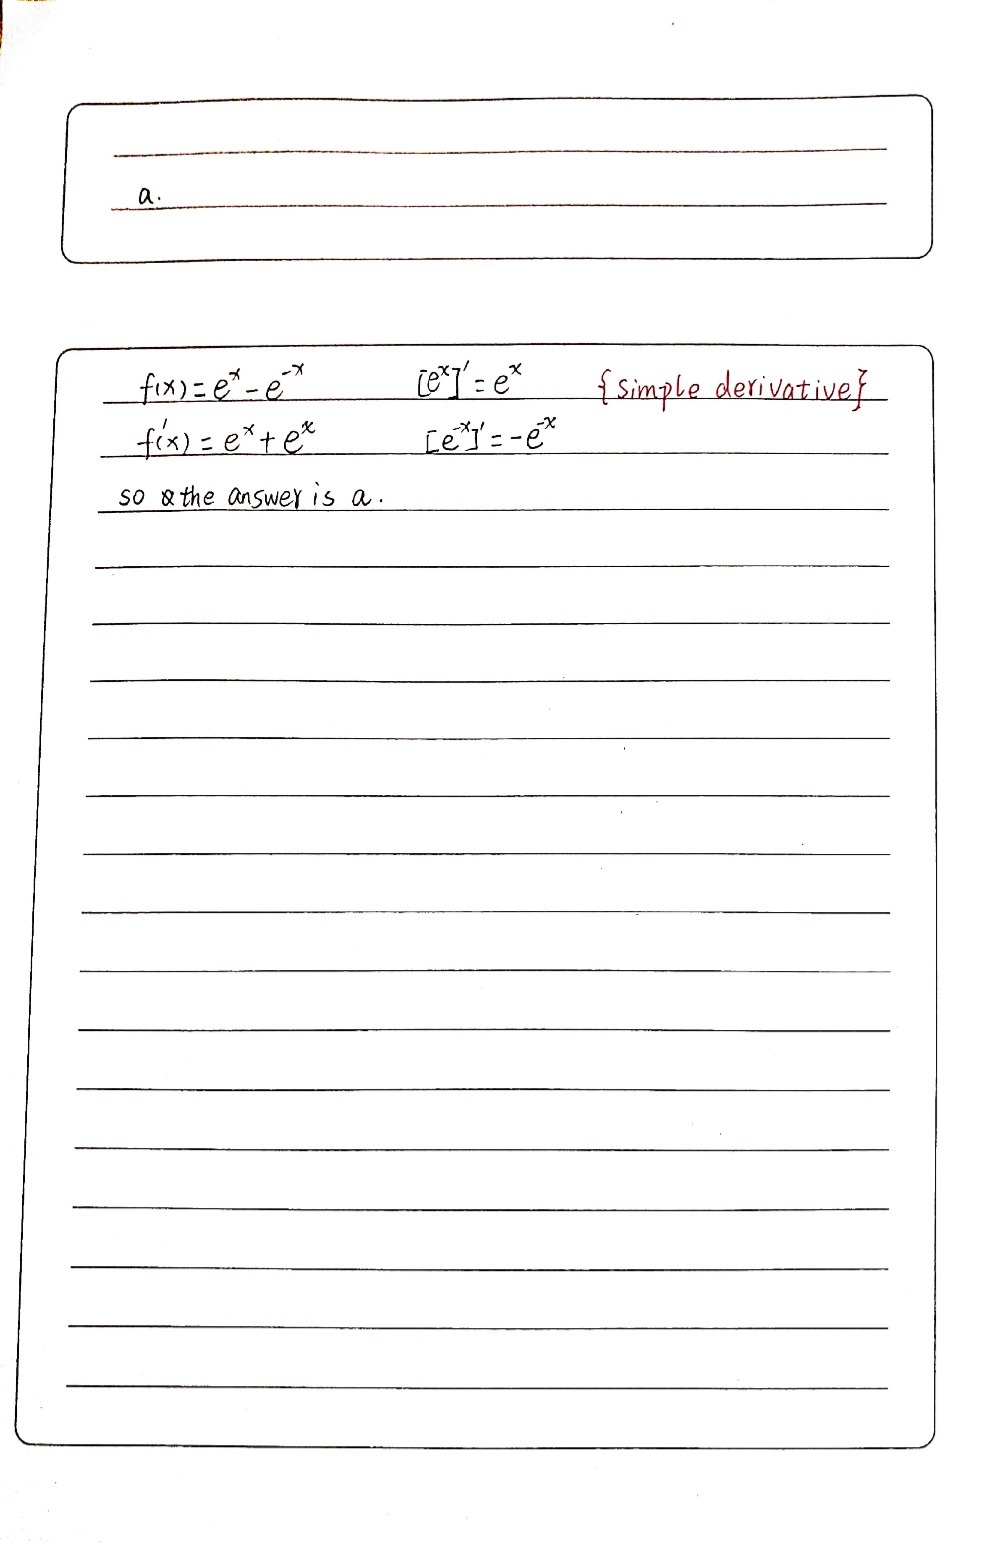 a.
f(x) = e^x - e^-x [e^x]' = e^x {simple derivative}
f'(x) = e^x + e^x [e^-x]' = -e^-x
so the answer is a.